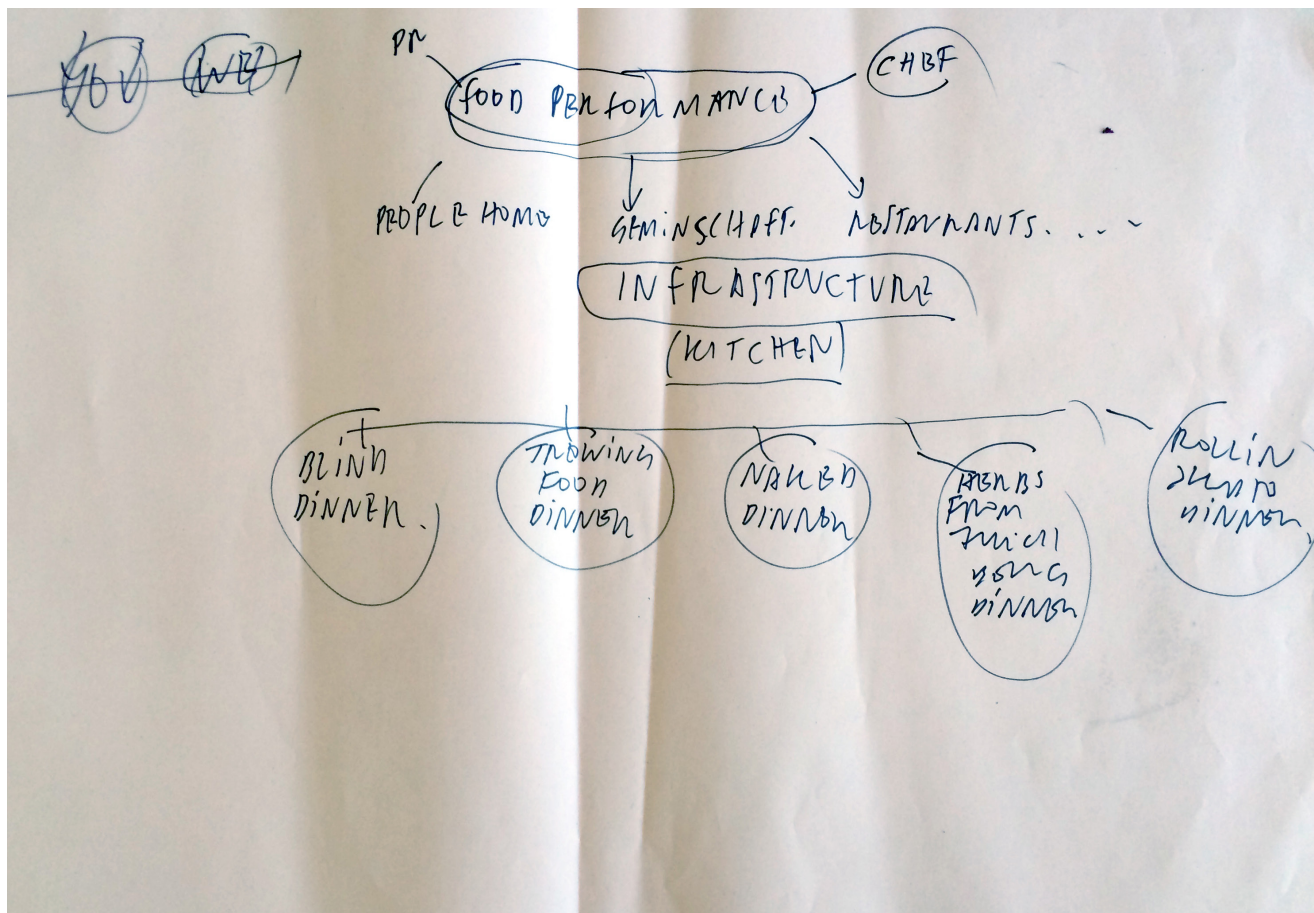 YOU WE
PR
FOOD PERFORMANCE
CHEF
PEOPLE HOME
GEMINSCHAFT.
RESTAURANTS. ...
INFRASTRUCTURE
(KITCHEN)
BLIND
DINNER.
TROWING
FOOD
DINNER
NAKED
DINNER
HERBS
FROM
DINNER
ROLLIN
DINNER